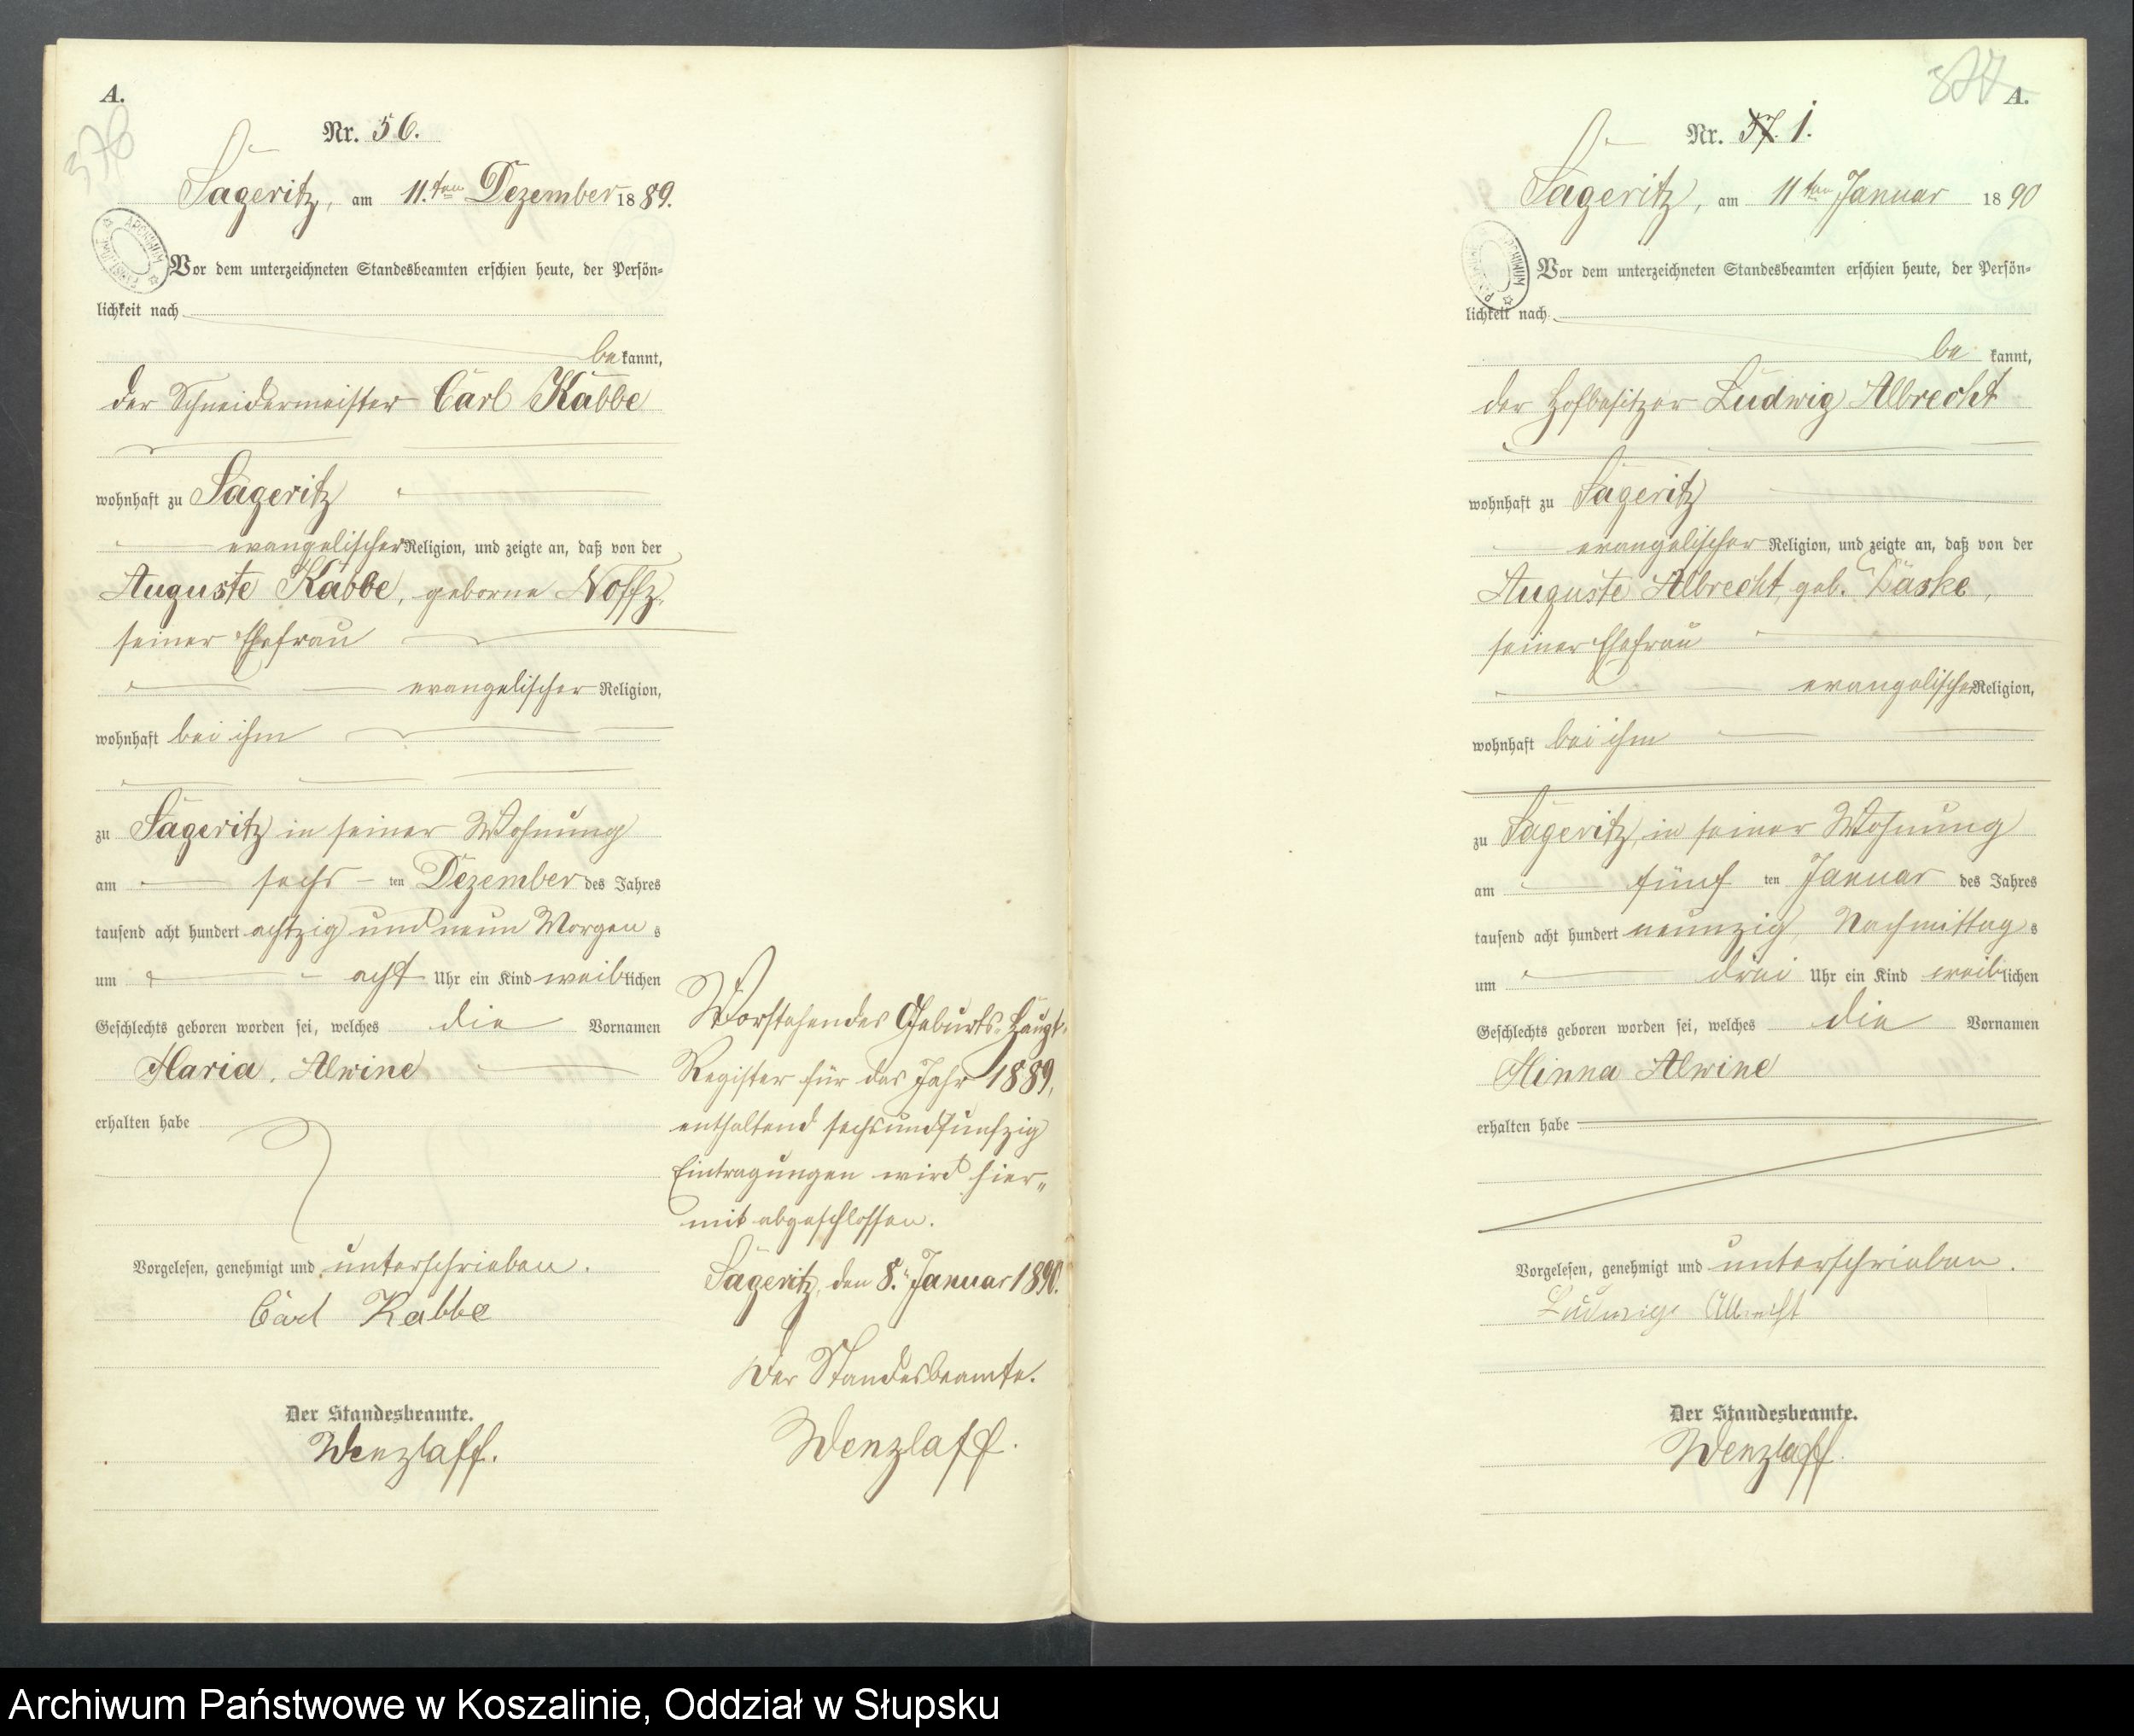 A.
378
Nr. 56.
Sageritz, am 11.ten Dezember 1889.
Vor dem unterzeichneten Standesbeamten erschien heute, der Persön-
lichkeit nach
bekannt,
der Schneidermeister Carl Kabbe
wohnhaft zu Sageritz
evangelischer Religion, und zeigte an, daß von der
Auguste Kabbe, geborne Noffz,
seiner Ehefrau
evangelischer Religion,
wohnhaft bei ihm
zu Sageritz in seiner Wohnung
am sechs ten Dezember des Jahres
tausend acht hundert achtzig und neun Morgens
um acht Uhr ein Kind weiblichen
Geschlechts geboren worden sei, welches die Vornamen
Maria, Alwine
erhalten habe
Vorgelesen, genehmigt und unterschrieben.
Carl Kabbe
Der Standesbeamte.
Wenzlaff.
Vorstehendes Geburts-Haupt-
Register für das Jahr 1889,
enthaltend sechsundfunfzig
Eintragungen wird hier-
mit abgeschlossen.
Sageritz, den 8. Januar 1890.
Der Standesbeamte.
Wenzlaff.
A.
Nr. 57. 1.
Sageritz, am 11ten Januar 1890
Vor dem unterzeichneten Standesbeamten erschien heute, der Persön-
lichkeit nach
bekannt,
der Hofbesitzer Ludwig Albrecht
wohnhaft zu Sageritz
evangelischer Religion, und zeigte an, daß von der
Auguste Albrecht, geb. Päske,
seiner Ehefrau
evangelischer Religion,
wohnhaft bei ihm
zu Sageritz, in seiner Wohnung
am fünf ten Januar des Jahres
tausend acht hundert neunzig, Nachmittags
um drei Uhr ein Kind weiblichen
Geschlechts geboren worden sei, welches die Vornamen
Minna Alwine
erhalten habe
Vorgelesen, genehmigt und unterschrieben.
Ludwig Albrecht
Der Standesbeamte.
Wenzlaff.
Archiwum Państwowe w Koszalinie, Oddział w Słupsku